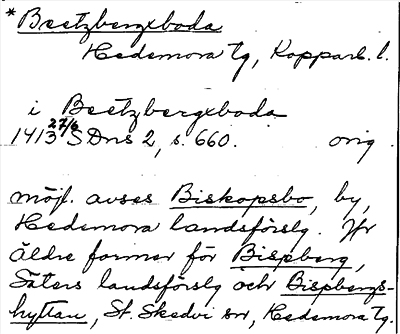 *Beetzbergxboda
Hedemora tg, Kopparb. l.
i Beetzbergxboda
1413 27/6 SDns 2, s. 660. orig.
möjl. avses Biskopsbo, by,
Hedemora landsförslg. Jfr
äldre former för Bispberg,
Säters landsförslg och Bispbergs-
hyttan, St. Skedvi sn, Hedemora tg.